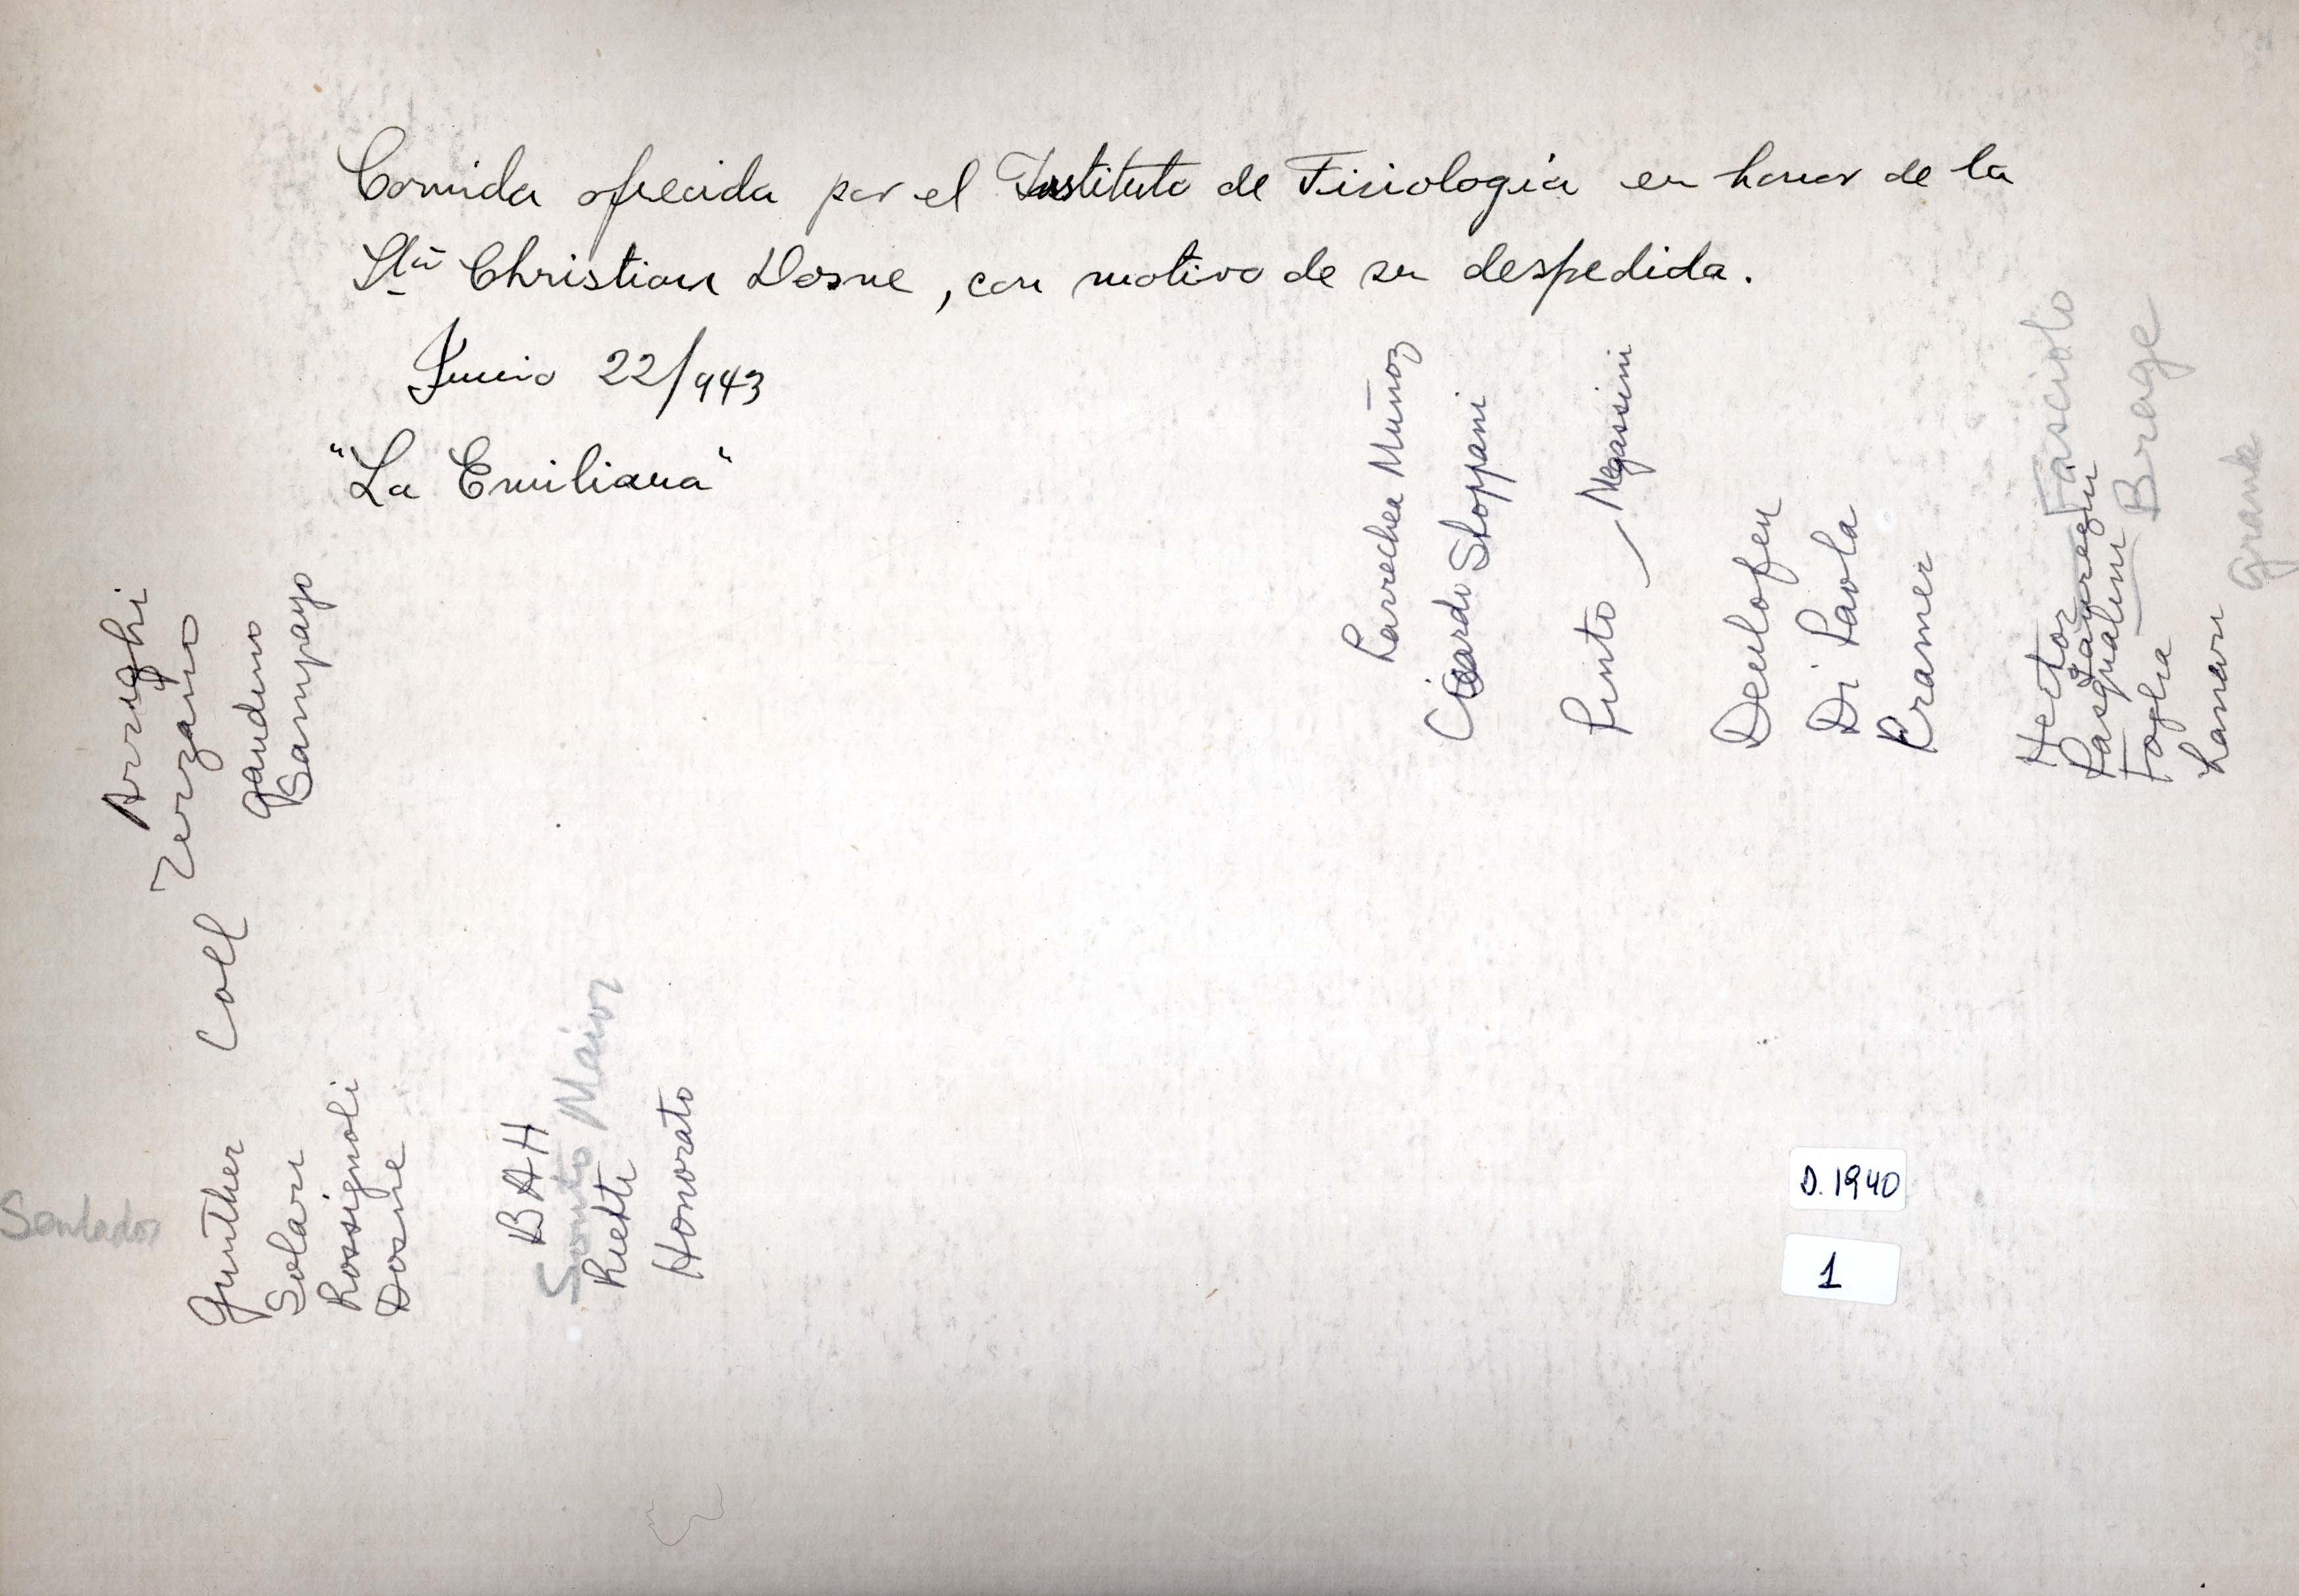 Comida ofrecida por el Instituto de Fisiología en honor de la
Sta Christian Dosne, con motivo de su despedida.
Junio 22/943
"La Emiliana"
Arrighi
Zerzano
Gandino
Sampayo
Coll
Sentados
Gunther
Solari
Rossignoli
Dosne
BAH
Sonto Maior
Rietti
Honorato
Larrechea Muñoz
Ciardi Stoppani
Pinto — Negassini
Deulofeu
Di Paola
Kramer
Hector
Fasciolo
Pasqualini
Jauregui
Foglia — Brage
Lanari
Grande
D.1940
1